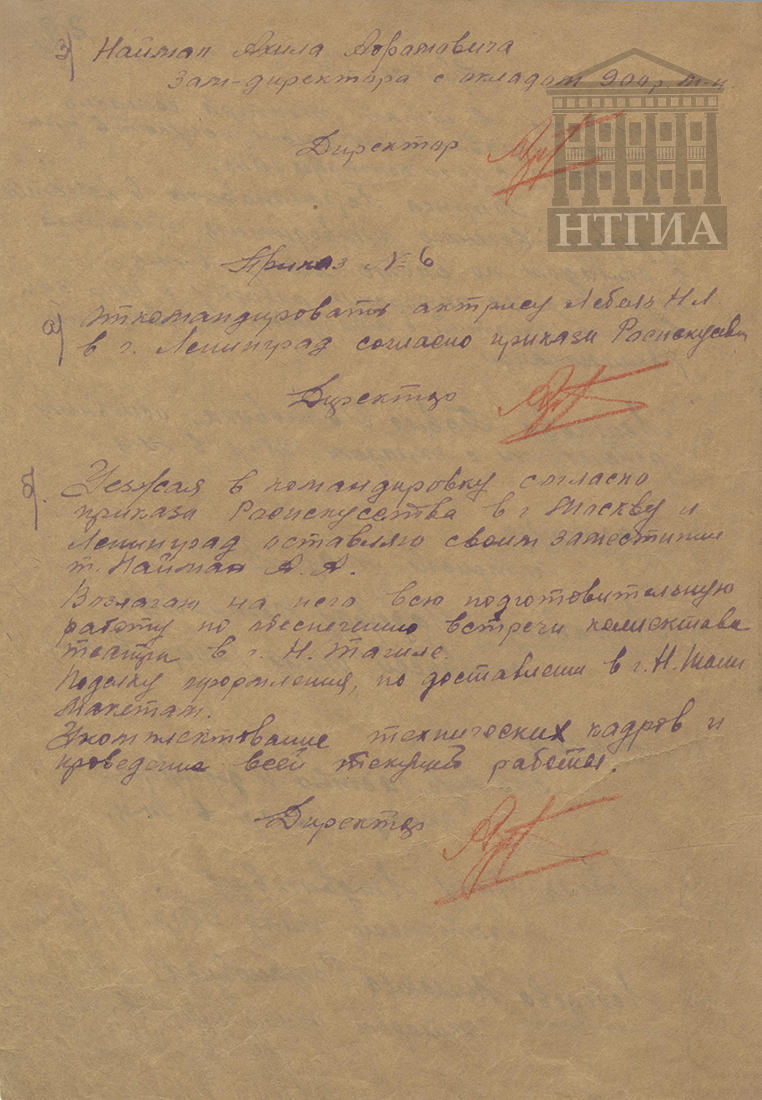 3) Найман Ахила Абрамовича
Зам-директора с окладом 900 р. м-ц.
Директор
НТГИА
Приказ № 6
а) Откомандировать актрису Лебаль Н Л
в г. Ленинград согласно приказа Росискусства
Директор
б) Уезжая в командировку согласно
приказа Росискусства в г Москву и
Ленинград оставляю своим заместителем
т. Найман А. А.
Возлагаю на него всю подготовительную
работу по обеспечению встречи коллектива
театра в г. Н. Тагиле.
Поделку оформления, по доставлении в г. Н. Тагил
макетам.
Укомплектование технических кадров и
проведение всей текущей работы.
Директор